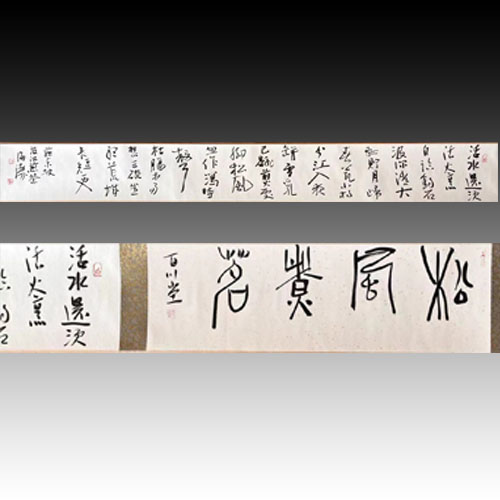 活水還須
活火烹
自臨釣石
汲深清大
瓢貯月歸
春瓮小杓
分江入夜
瓶雪乳
已翻煎處
脚松風
忽作瀉時
聲
枯腸未易
禁三碗坐
聽荒城
長短更
蘇東坡
汲江煎茶
松風煮茗
百川堂
活水還須
活火烹